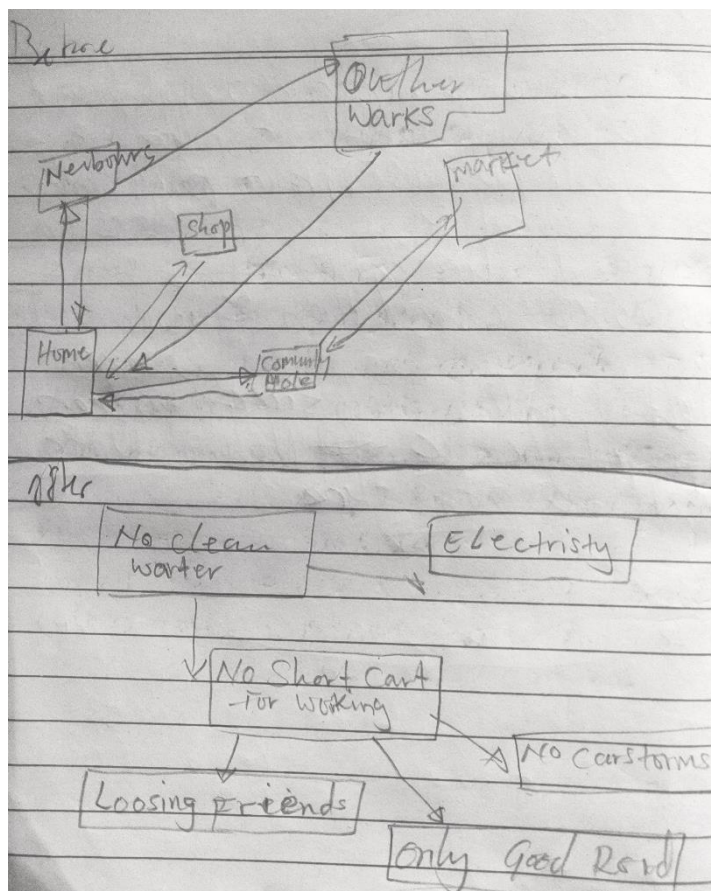 Before
Outher
Warks
Neibohurs
Market
Shop
Home
Comunity
Hole
After
No clean
Warter
Electristy
No Short Cart
For Working
No Carstorms
Loosing Friends
Only Good Rord